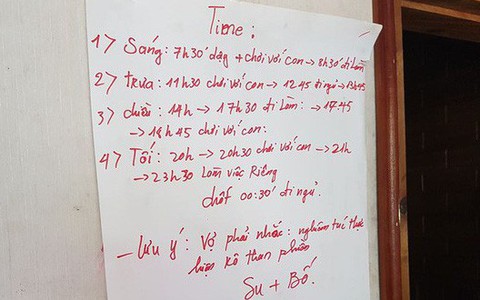 Time:
1> Sáng: 7h30' dậy + chơi với con → 8h30 đi làm
2> trưa: 11h30 chơi với con → 12 45 đi ngủ → 13h45
3> chiều: 14h → 17h30 đi làm: → 17h45
→ 18h45 chơi với con:
4> Tối: 20h → 20h30 chơi với con → 21h
→ 23h30 làm việc Riêng
chốt 00:30' đi ngủ.
– Lưu ý: Vợ phải nhắc: nghiêm túc thực
hiện kô than phiền
Su + Bố.